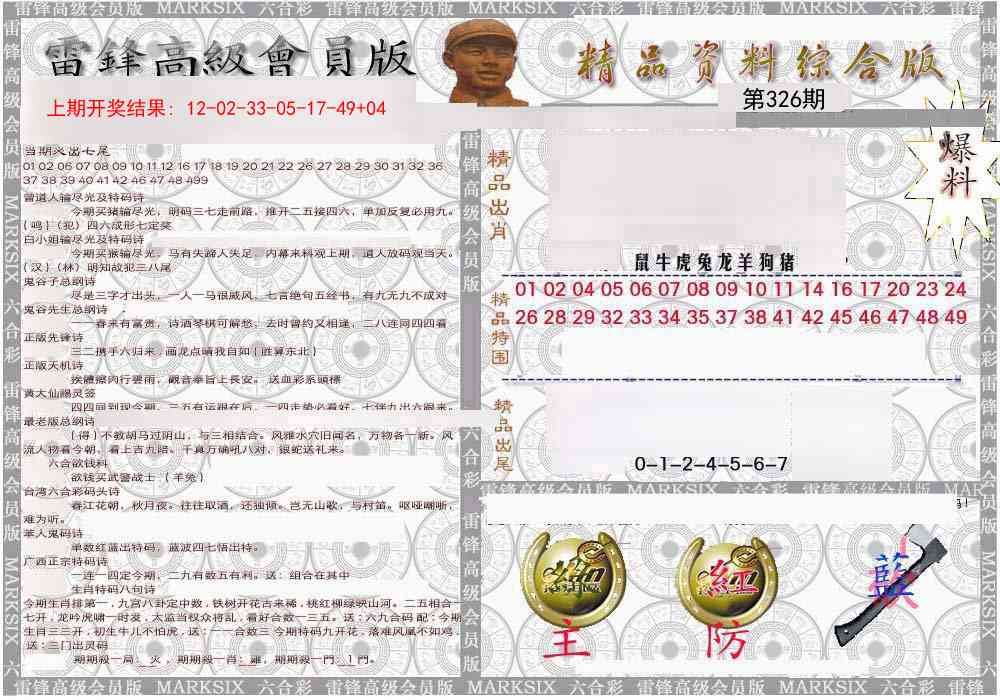 雷锋高级会员版 MARKSIX 六合彩 雷锋高级会员版 MARKSIX 六合彩 雷锋高级会员版 MARKSIX 六合彩 雷锋
雷鋒高級會員版
精品资料综合版
上期开奖结果：12-02-33-05-17-49+04
第326期
爆料
当期必出七尾
01 02 06 07 08 09 10 11 12 16 17 18 19 20 21 22 26 27 28 29 30 31 32 36
37 38 39 40 41 42 46 47 48 499
曾道人输尽光及特码诗
今期买猪输尽光，明码三七走前路，推开二五接四六，单加反复必用九。
{鸣}（犯）四六成形七定奖
白小姐输尽光及特码诗
今期买猴输尽光，马有失蹄人失足，内幕来料观上期，道人放码观当天。
{汉}（林）明知故犯三八尾
鬼谷子总纲诗
尽是三字才出头，一人一马很威风，七言绝句五经书，有九无九不成对
鬼谷先生总纲诗
一一春来有富贵，诗酒琴棋可解愁，去时曾约又相逢，二八连同四四看
正版先锋诗
三二携手六归来，画龙点晴我自如{胜算东北}
正版天机诗
挨體擦肉行雲雨，觀音奉旨上長安。送血彩系頭標
黄大仙赐灵签
四四回到现今期，三五有运跟在后，一四走势必看好，七伴九出六跟来。
最老版总纲诗
{得}不教胡马过阴山，与三相结合。风雅水穴旧闻名，万物各一新。风
流人物看今朝，看上吉九陪。千真万确吼八对，银蛇送礼来。
六合欲钱料
欲钱买武警战士（羊兔）
台湾六合彩码头诗
春江花朝，秋月夜。往往取酒，还独倾。岂无山歌，与村笛。呕哑嘲哳，
难为听。
本人鬼码诗
单数红蓝出特码，蓝波四七悟出特。
广西正宗特码诗
一连一四定今期，二九有数五有利。送：组合在其中
生肖特码八句诗
今期生肖排第一，九宫八卦定中数，铁树开花古来稀，桃红柳绿映山河。二五相合一
七开，龙吟虎啸一时发，太监当权众将乱，看好合数一三五。送：六九合码 配：今期
生肖三三开，初生牛儿不怕虎，送：一一合数三 今期特码九开花，落难凤凰不如鸡，
送：三门出灵码
期期殺一局：火，期期殺一肖：雞，期期殺一門：1門。
精品出肖
鼠牛虎兔龙羊狗猪
精品特围
01 02 04 05 06 07 08 09 10 11 14 16 17 20 23 24
26 28 29 32 33 34 35 37 38 41 42 45 46 47 48 49
精品出尾
0-1-2-4-5-6-7
雷锋高级会员版 MARKSIX 六合彩 雷锋高级会员版 MARKSIX
緑
主
紅
防
藍
雷锋高级会员版 MARKSIX 六合彩 雷锋高级会员版 MARKSIX 六合彩 雷锋高级会员版 MARKSIX 六合彩 雷锋